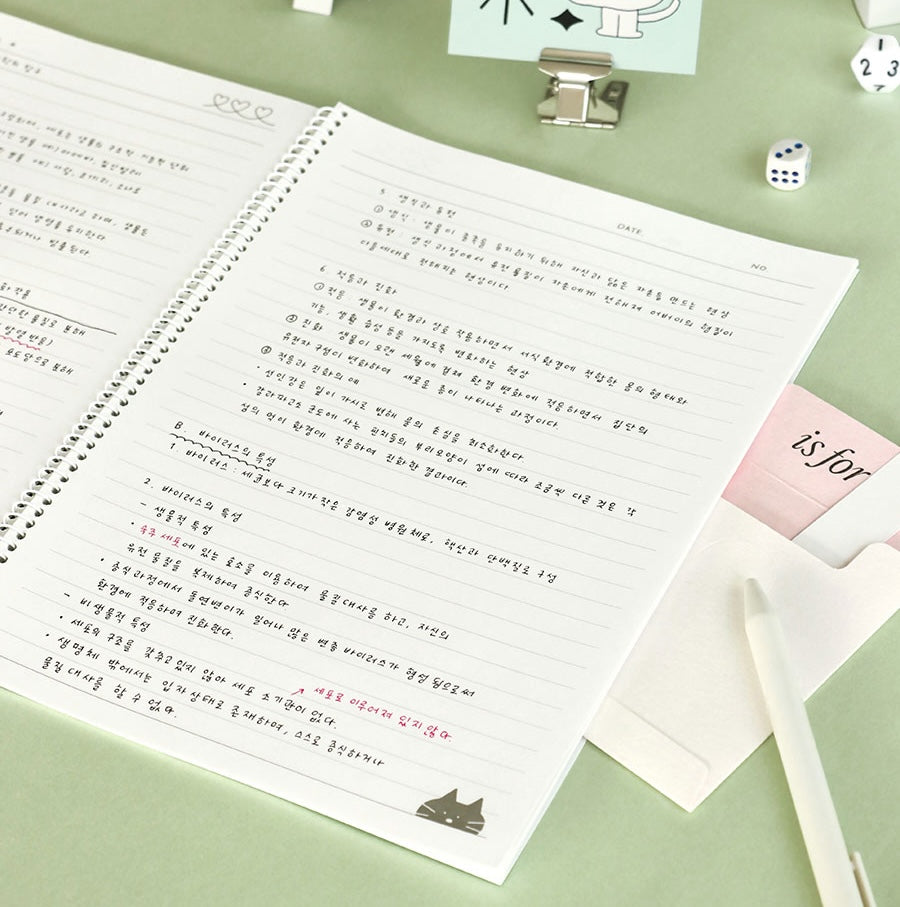 생물적 구조적 기능적 단위
예) 아메바, 짚신벌레
예) 사람, 코끼리, 소나무
물질 대사라고 하며, 생물은
얻어 생명을 유지한다
방출된다
물질로 분해
반응)
포도당으로 분해
DATE.
NO.
5. 생식과 유전
① 생식 : 생물이 종족을 유지하기 위해 자신과 닮은 자손을 만드는 현상
② 유전 : 생식 과정에서 유전 물질이 자손에게 전해져 어버이의 형질이
다음세대로 전해지는 현상이다
6. 적응과 진화
① 적응 : 생물이 환경과 상호 작용하면서 서식 환경에 적합한 몸의 형태와
기능, 생활 습성 등을 가지도록 변화하는 현상
② 진화 : 생물이 오랜 세월에 걸쳐 환경 변화에 적응하면서 집단의
유전자 구성이 변화하여 새로운 종이 나타나는 과정이다.
③ 적응과 진화의 예
• 선인장은 잎이 가시로 변해 물의 손실을 최소화한다
• 갈라파고스 군도에 사는 핀치들의 부리모양이 섬에 따라 조금씩 다른 것은 각
섬의 먹이 환경에 적응하여 진화한 결과이다.
B. 바이러스의 특성
1. 바이러스 : 세균보다 크기가 작은 감염성 병원체로, 핵산과 단백질로 구성
2. 바이러스의 특성
- 생물적 특성
• 숙주 세포에 있는 효소를 이용하여 물질대사를 하고, 자신의
유전 물질을 복제하여 증식한다
• 증식 과정에서 돌연변이가 일어나 많은 변종 바이러스가 형성 됨으로써
환경에 적응하여 진화한다.
- 비생물적 특성
• 세포의 구조를 갖추고 있지 않아 세포 소기관이 없다.
↗ 세포로 이루어져 있지 않다.
• 생명체 밖에서는 입자상태로 존재하며, 스스로 증식하거나
물질대사를 할 수 없다.
is for
1
2 3
7